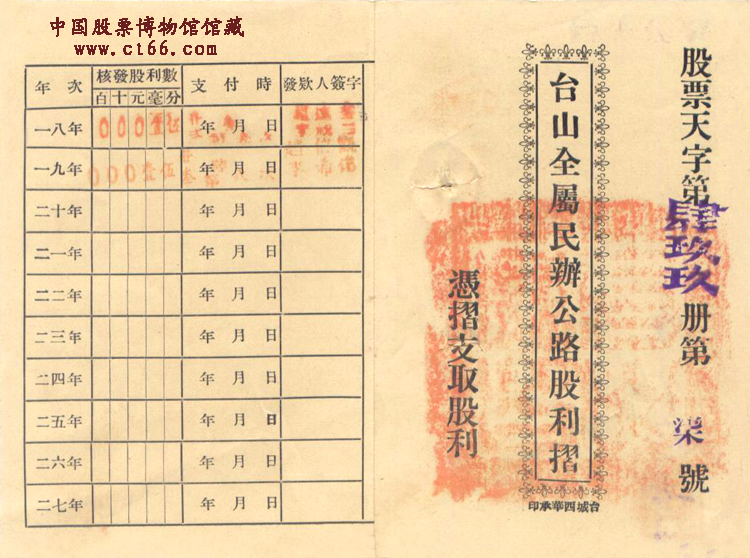 中国股票博物馆馆藏
www.ct66.com
股票天字第肆玖玖册第柒號
台山全屬民辦公路股利摺
憑摺支取股利
台城西華承印
年次 核發股利數 支付時 發欵人簽字
百十元毫分
一八年 000壹伍 年 月 日
一九年 000壹伍 年 月 日
二十年 年 月 日
二一年 年 月 日
二二年 年 月 日
二三年 年 月 日
二四年 年 月 日
二五年 年 月 日
二六年 年 月 日
二七年 年 月 日